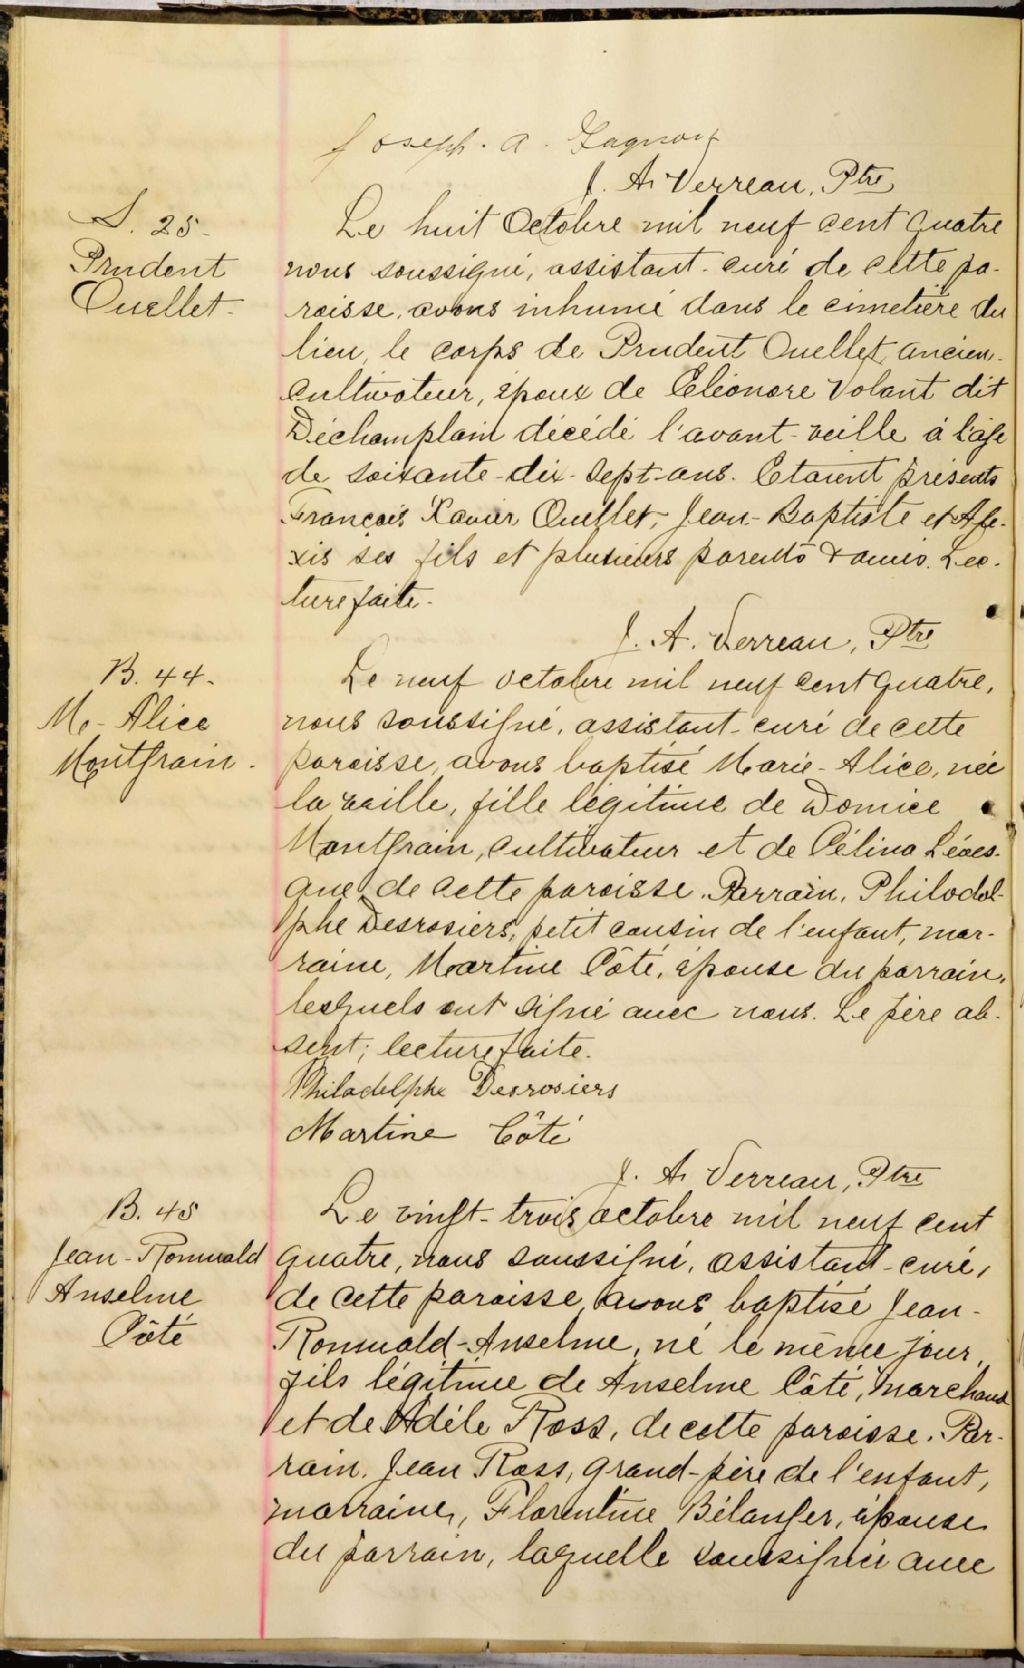 Joseph. A. Gagnon
J. A. Verreau, Ptre
S. 25.
Prudent
Ouellet.
Le huit Octobre mil neuf cent quatre
nous soussigné, assistant-curé de cette pa-
roisse, avons inhumé dans le cimetière du
lieu, le corps de Prudent Ouellet, ancien-
cultivateur, époux de Eléonore Volant dit
Déchamplain décédé l'avant-veille à l'age
de soixante-dix-sept-ans. Etaient présents
François Xavier Ouellet, Jean-Baptiste et Ale-
xis ses fils et plusieurs parents & amis. Lec-
ture faite.
J. A. Verreau, Ptre
B. 44.
M. Alice
Montgrain.
Le neuf octobre mil neuf cent quatre,
nous soussigné, assistant-curé de cette
paroisse, avons baptisé Marie-Alice, née
la veille, fille légitime de Domice
Montgrain, cultivateur et de Célina Léves-
que de cette paroisse. Parrain, Philadel-
phe Desrosiers, petit cousin de l'enfant, mar-
raine, Martine Côté, épouse du parrain,
lesquels ont signé avec nous. Le père ab-
sent; lecture faite.
Philadelphe Desrosiers
Martine Côté
J. A. Verreau, Ptre
B. 45
Jean-Romuald
Anselme
Côté
Le vingt-trois octobre mil neuf cent
quatre, nous soussigné, assistant-curé,
de cette paroisse, avons baptisé Jean-
Romuald-Anselme, né le même jour,
fils légitime de Anselme Côté, marchand
et de Adèle Ross, de cette paroisse. Par-
rain, Jean Ross, grand-père de l'enfant,
marraine, Florentine Bélanger, épouse
du parrain, laquelle soussignée avec